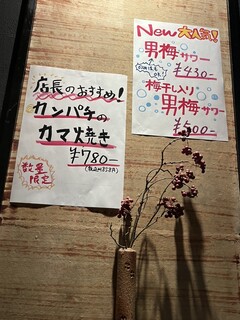 店長のおすすめ!
カンパチの
カマ焼き
¥780-
(税込858円)
数量
限定
New 大人気!
男梅サワー
¥430-
梅干し入り
男梅サワー